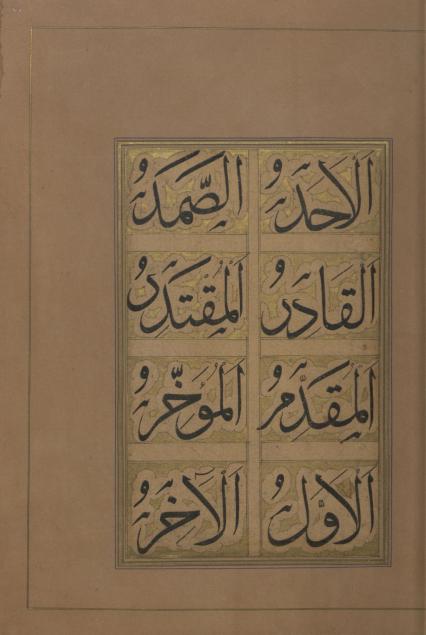 الْاَحَدُ الصَّمَدُ
اَلْقَادِرُ اَلْمُقْتَدِرُ
اَلْمُقَدِّمُ اَلْمُوَخِّرُ
اَلْاَوَّلُ اَلْآخِرُ